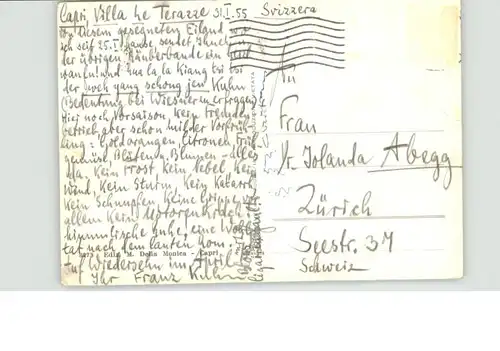 Capri, Villa Le Terazze 31.I.55 Svizzera
Von diesem gesegneten Eiland wo
ich seit 25.I. hause sendet Ihnen
der übrigen Räuberbande ein
la la Kiang tsi
der hoch yang schong jen Kuhn
(Bedeutung bei Wiesner zu erfragen)
Hier noch Vorsaison Kein Fremden-
betrieb aber schon milder Vorfrüh-
ling: Goldorangen, Citronen, Früh
gemüse, Blüten u. Blumen - alles
da. Kein Frost Kein Nebel, Kein
Wind, Kein Sturm, Kein Katarrh
Kein Schnupfen Keine Grippe
allem Kein Motorenkrach.
himmlische Ruhe, eine Wohl-
tat nach dem lauten Rom.
Auf Wiedersehn im April
Ihr Franz Kuhn
6473 - Ediz. M. Della Monica - Capri
An
Frau
Dr Jolanda Abegg
Zürich
Seestr. 37
Schweiz